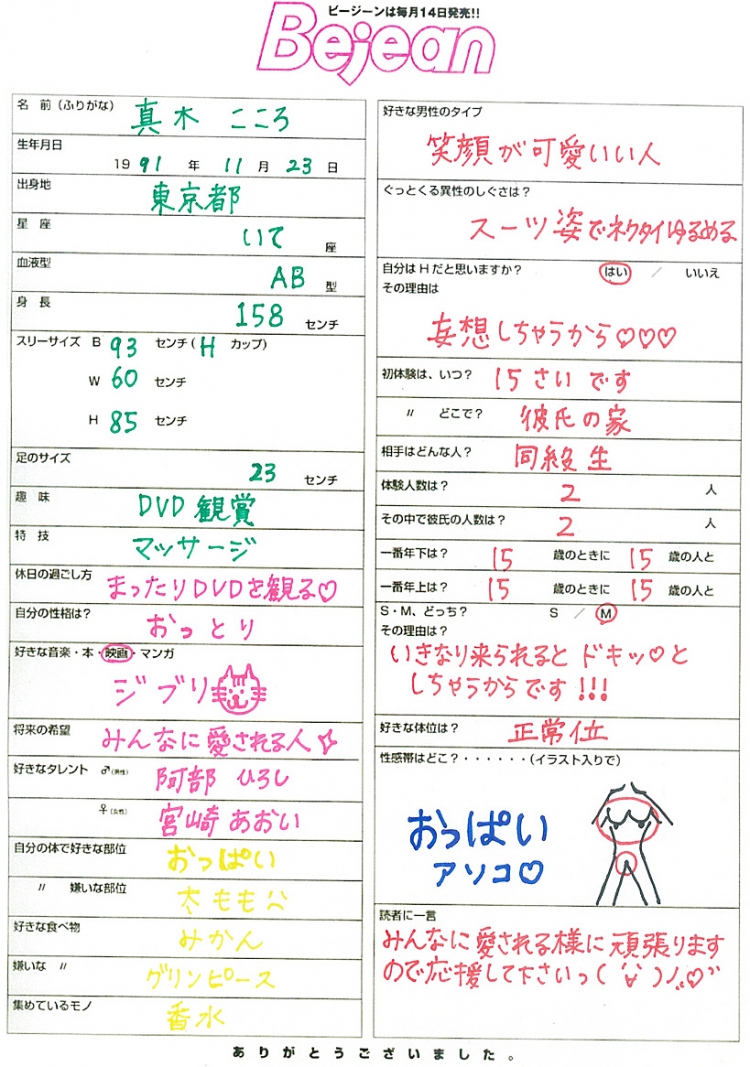 ビージーンは毎月14日発売!!
Bejean
名 前(ふりがな) 真木 こころ
生年月日
19 91 年 11 月 23 日
出身地 東京都
星 座 いて 座
血液型 AB 型
身 長 158 センチ
スリーサイズ B 93 センチ( H カップ)
W 60 センチ
H 85 センチ
足のサイズ 23 センチ
趣 味 DVD 観賞
特 技 マッサージ
休日の過ごし方 まったりDVDを観る♡
自分の性格は? おっとり
好きな音楽・本・映画・マンガ
ジブリ
将来の希望 みんなに愛される人☆
好きなタレント ♂(男性) 阿部 ひろし
♀(女性) 宮崎 あおい
自分の体で好きな部位 おっぱい
〃 嫌いな部位 太もも
好きな食べ物 みかん
嫌いな 〃 グリンピース
集めているモノ 香水
好きな男性のタイプ
笑顔が可愛いい人
ぐっとくる異性のしぐさは?
スーツ姿でネクタイゆるめる
自分はHだと思いますか? はい / いいえ
その理由は
妄想しちゃうから♡♡♡
S・M、どっち? S / M
その理由は?
いきなり来られると ドキッ♡と
しちゃうからです!!!
好きな体位は? 正常位
性感帯はどこ?・・・・・・(イラスト入りで)
おっぱい
アソコ♡
読者に一言
みんなに愛される様に頑張ります
ので応援して下さいっ( '∀' )ノ♡
ありがとうございました。